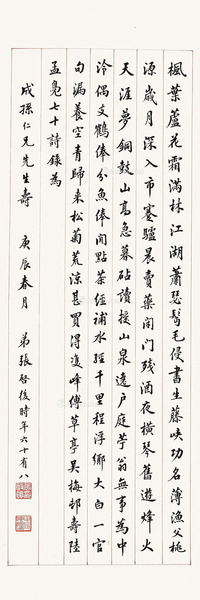 楓葉蘆花霜滿林江湖蕭瑟鬢毛侵書生藤峽功名薄漁父桃
源歲月深入市蹇驢晨賣藥閉門殘酒夜橫琴舊遊烽火
天涯夢銅鼓山高急暮砧讀授山泉遶戶庭苧翁無事為中
泠偶支鶴俸分魚俸閒點茶經補水經千里程浮鄉大白一官
句漏養空青歸來松菊荒涼甚買得雙峰縛草亭吳梅邨壽陸
孟鳧七十詩錄為
成孫仁兄先生壽 庚辰春月 弟張啓後時年六十有八